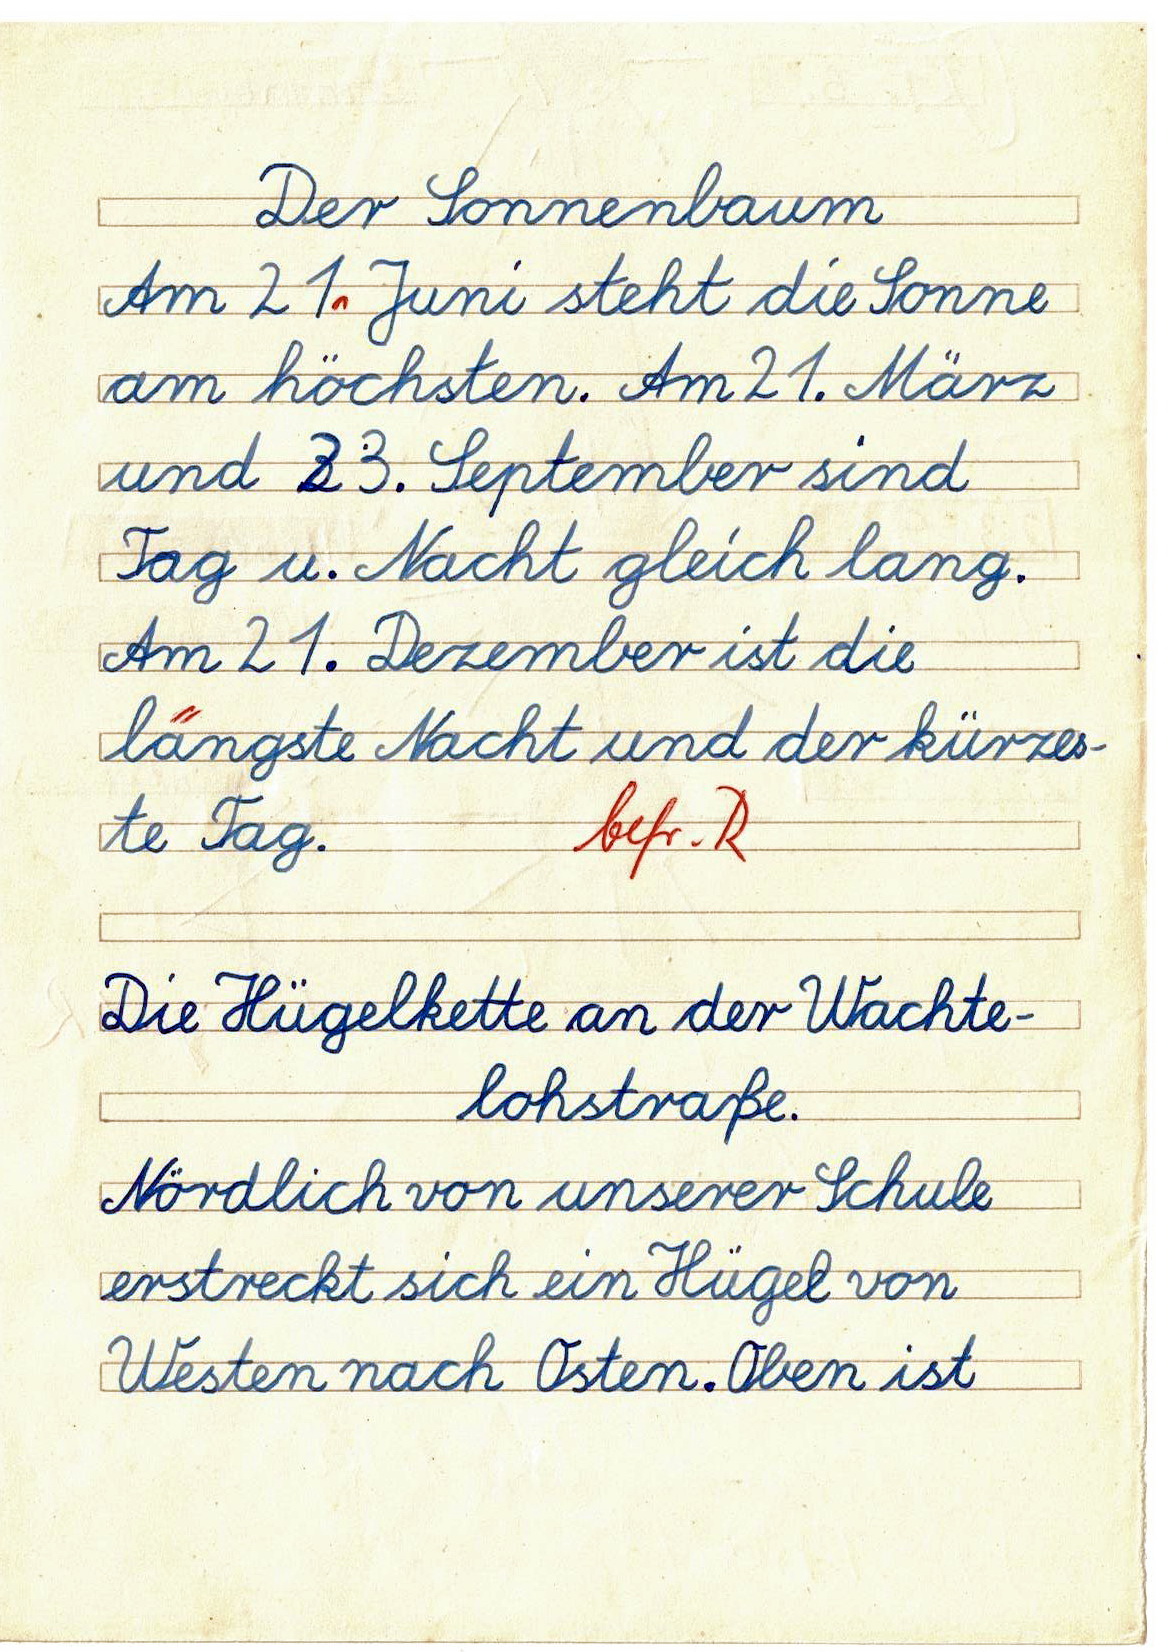 Der Sonnenbaum
Am 21. Juni steht die Sonne
am höchsten. Am 21. März
und 23. September sind
Tag u. Nacht gleich lang.
Am 21. Dezember ist die
längste Nacht und der kürzes-
te Tag. befr. R
Die Hügelkette an der Wachte-
lohstraße.
Nördlich von unserer Schule
erstreckt sich ein Hügel von
Westen nach Osten. Oben ist